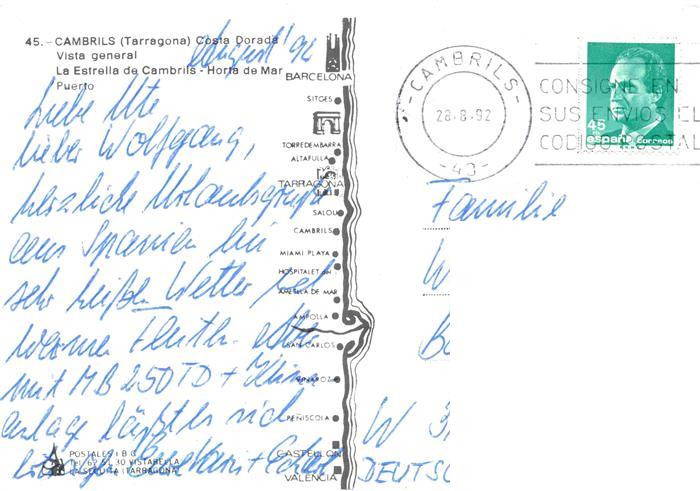 45. - CAMBRILS (Tarragona) Costa Dorada
Vista general
La Estrella de Cambrils - Horta de Mar
Puerto
August '92
Liebe Ute
lieber Wolfgang,
herzliche Urlaubsgrüße
aus Spanien bei
sehr heißem Wetter und
warmen
mit MB 250TD + Klima
anlage läßt es sich
POSTALES I B G
VISTABELLA
BARCELONA
SITGES
TORREDEMBARRA
ALTAFULLA
TARRAGONA
SALOU
CAMBRILS
MIAMI PLAYA
HOSPITALET del
AMETLLA DE MAR
AMPOLLA
SAN CARLOS
VINAROZ
PEÑISCOLA
CASTELLON
VALENCIA
-CAMBRILS-
28-8-92
-43-
CONSIGNE EN
SUS ENVIOS EL
CODIGO POSTAL
45
españa Correos
Familie
W
W
DEUTSC